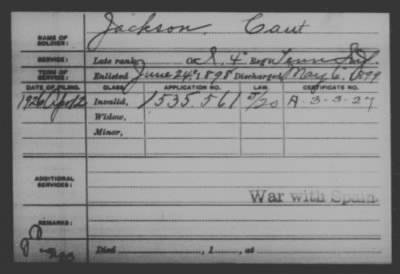 NAME OF SOLDIER: Jackson, Caut
SERVICE: Late rank, Co. S, 4" Reg't Tenn Inf.
TERM OF SERVICE: Enlisted June 24", 1898 Discharged May 6, 1899
DATE OF FILING. CLASS. APPLICATION NO. LAW. CERTIFICATE NO.
1926 Apr 12 Invalid, 1535,561 5/20 A-3-3-27
Widow,
Minor,
ADDITIONAL SERVICES:
War with Spain.
REMARKS:
Died , 1 , at